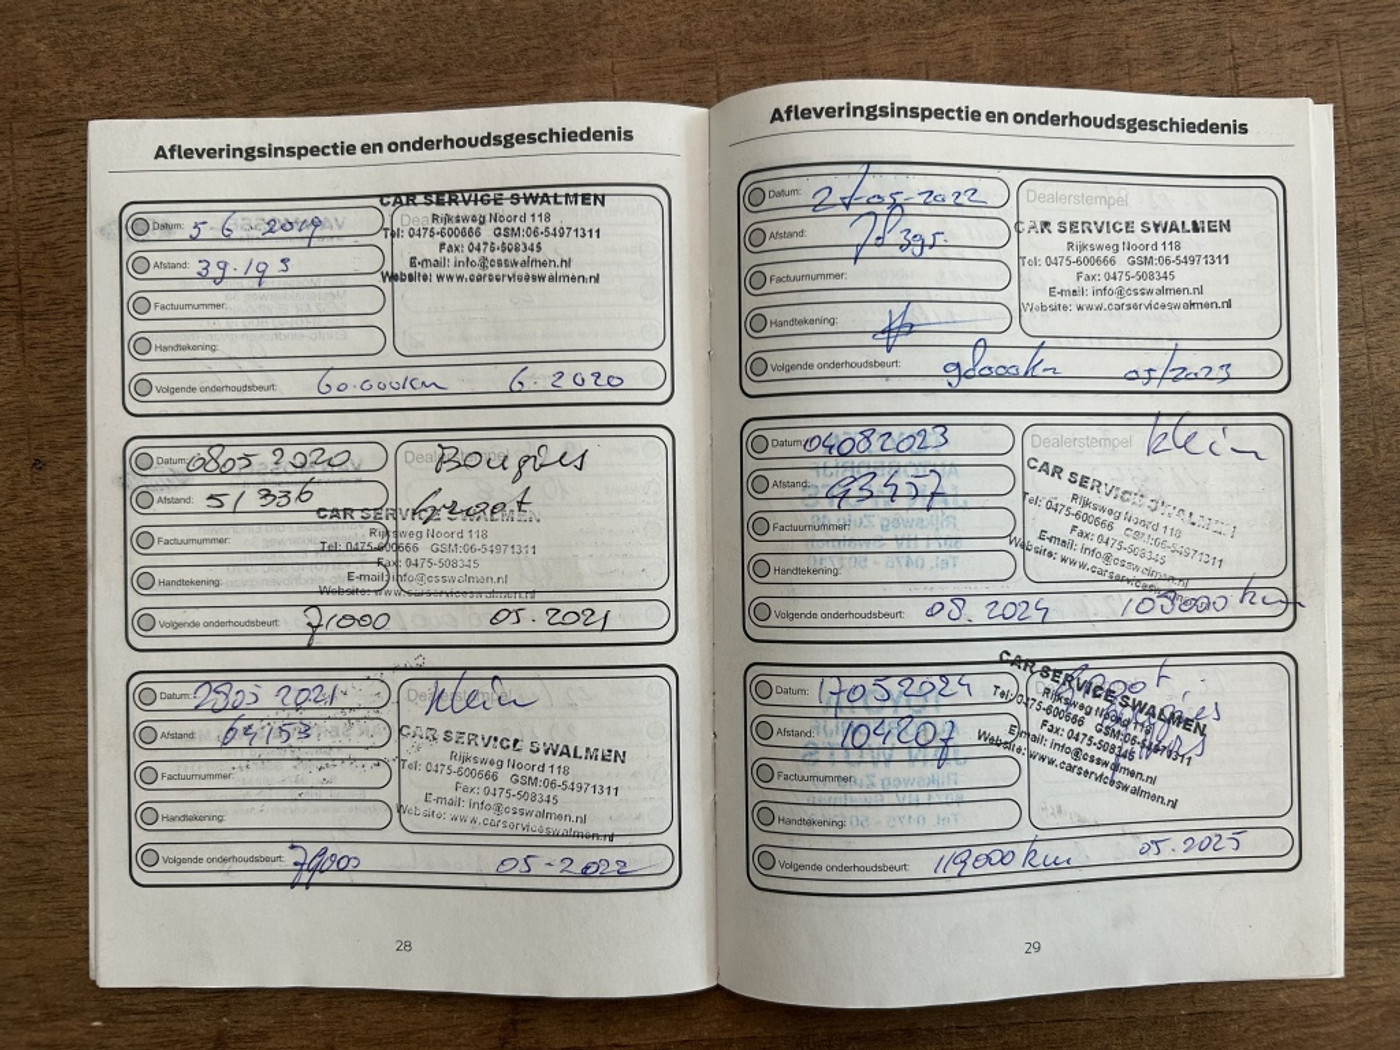 Afleveringsinspectie en onderhoudsgeschiedenis
Datum: 5-6-2019
Afstand: 39.193
Factuurnummer:
Handtekening:
CAR SERVICE SWALMEN
Rijksweg Noord 118
Tel: 0475-600666 GSM:06-54971311
Fax: 0475-508345
E-mail: info@csswalmen.nl
Website: www.carserviceswalmen.nl
Volgende onderhoudsbeurt: 60.000km 6.2020
Datum: 0805 2020
Afstand: 51336
Factuurnummer:
Handtekening:
Dealerstempel
Bougies
Groot
CAR SERVICE SWALMEN
Rijksweg Noord 118
Tel: 0475-600666 GSM:06-54971311
Fax: 0475-508345
E-mail: info@csswalmen.nl
Website: www.carserviceswalmen.nl
Volgende onderhoudsbeurt: 71000 05.2021
Datum: 2805 2021
Afstand: 64153
Factuurnummer:
Handtekening:
Dealerstempel klein
CAR SERVICE SWALMEN
Rijksweg Noord 118
Tel: 0475-600666 GSM:06-54971311
Fax: 0475-508345
E-mail: info@csswalmen.nl
Website: www.carserviceswalmen.nl
Volgende onderhoudsbeurt: 79000 05-2022
28
Afleveringsinspectie en onderhoudsgeschiedenis
Datum: 27-05-2022
Afstand:
Factuurnummer:
Handtekening:
Dealerstempel
CAR SERVICE SWALMEN
Rijksweg Noord 118
Tel: 0475-600666 GSM:06-54971311
Fax: 0475-508345
E-mail: info@csswalmen.nl
Website: www.carserviceswalmen.nl
Volgende onderhoudsbeurt: 05/2023
Datum: 04082023
Afstand: 93457
Factuurnummer:
Handtekening:
Dealerstempel klein
CAR SERVICE SWALMEN
Rijksweg Noord 118
Tel: 0475-600666 GSM:06-54971311
Fax: 0475-508345
E-mail: info@csswalmen.nl
Website: www.carserviceswalmen.nl
Volgende onderhoudsbeurt: 08.2024 103000 km
Datum: 17052024
Afstand: 104207
Factuurnummer:
Handtekening:
Groot
CAR SERVICE SWALMEN
Rijksweg Noord 118
Tel: 0475-600666 GSM:06-54971311
Fax: 0475-508345
E-mail: info@csswalmen.nl
Website: www.carserviceswalmen.nl
Volgende onderhoudsbeurt: 119000 km 05.2025
29